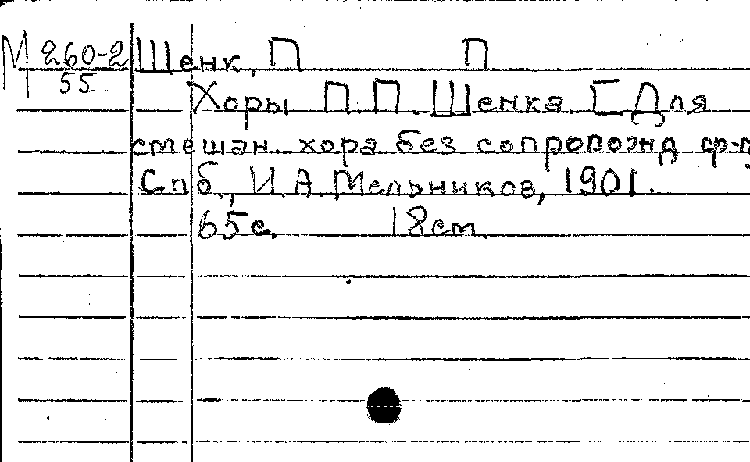 М 260-2 Шенк, П П
55
Хоры П. П. Шенка. [Для
смешан. хора без сопровожд ф-п
Спб., И. А. Мельников, 1901.
65 с. 18 см.